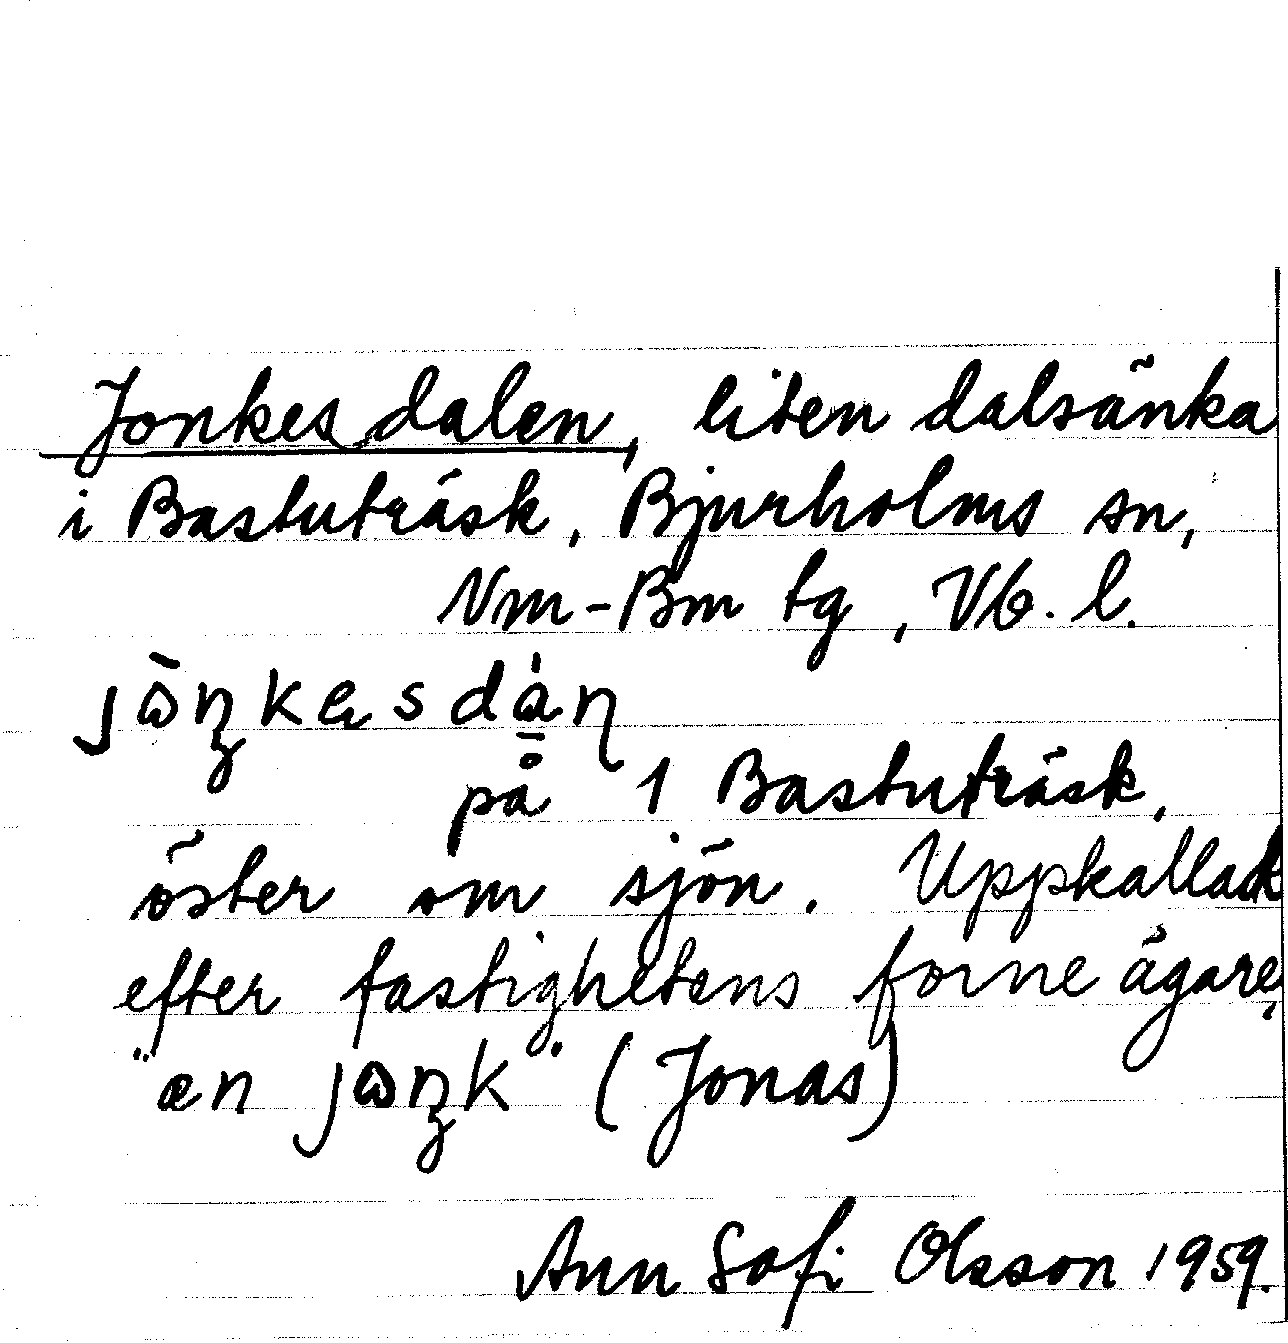 Jonkesdalen, liten dalsänka
i Bastuträsk, Bjurholms sn,
Nm-Bm tg, Vb. l.
på 1 Bastuträsk,
öster om sjön. Uppkallad
efter fastighetens forne ägare,
"æn jɷŋk" (Jonas)
Ann Sofi Olsson 1959.